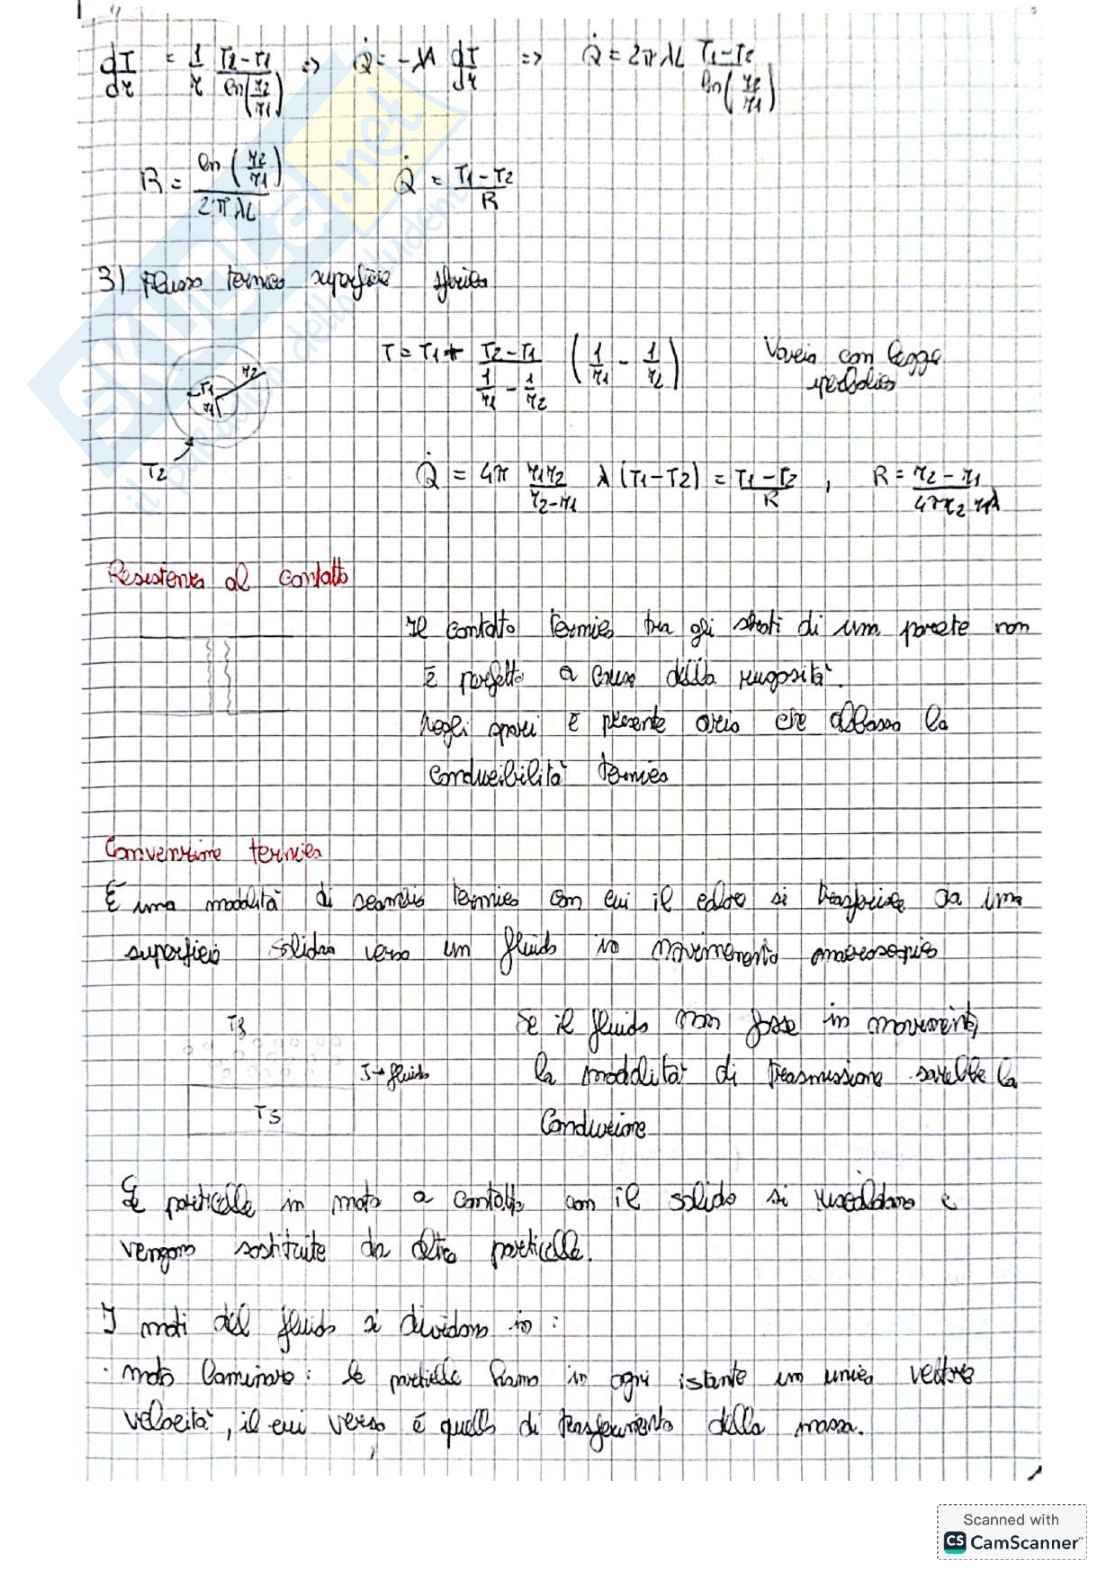 dT/dr = 1/r (T2-T1)/ln(r2/r1) => Q̇ = -λA dT/dr => Q̇ = 2πλL (T1-T2)/ln(r2/r1)
R = ln(r2/r1)/2πλL    Q̇ = (T1-T2)/R
3) Flusso termico superficie sferica
T = T1 + (T2-T1)/(1/r1 - 1/r2) (1/r1 - 1/r2)    Varia con legge
iperbolica
T1 r2
r1
T2
Q̇ = 4π r1r2/(r2-r1) λ (T1-T2) = (T1-T2)/R , R = (r2-r1)/4πr2r1λ
Resistenza al contatto
Il contatto termico tra gli strati di una parete non
è perfetto a causa della rugosità.
Negli spazi è presente aria che abbassa la
conducibilità termica
Convenzione termica
È una modalità di scambio termico con cui il calore si trasferisce da una
superficie solida verso un fluido in movimento macroscopico
Se il fluido non fosse in movimento,
la modalità di trasmissione sarebbe la
conduzione
Tf
I→fluido
TS
Le particelle in moto a contatto con il solido si riscaldano e
vengono sostituite da altre particelle.
I moti del fluido si dividono in:
· moto laminare: le particelle hanno in ogni istante un unico vettore
velocità, il cui verso è quello di trasferimento della massa.
SKUOLA.net
il portale dello studente
Scanned with
CS CamScanner